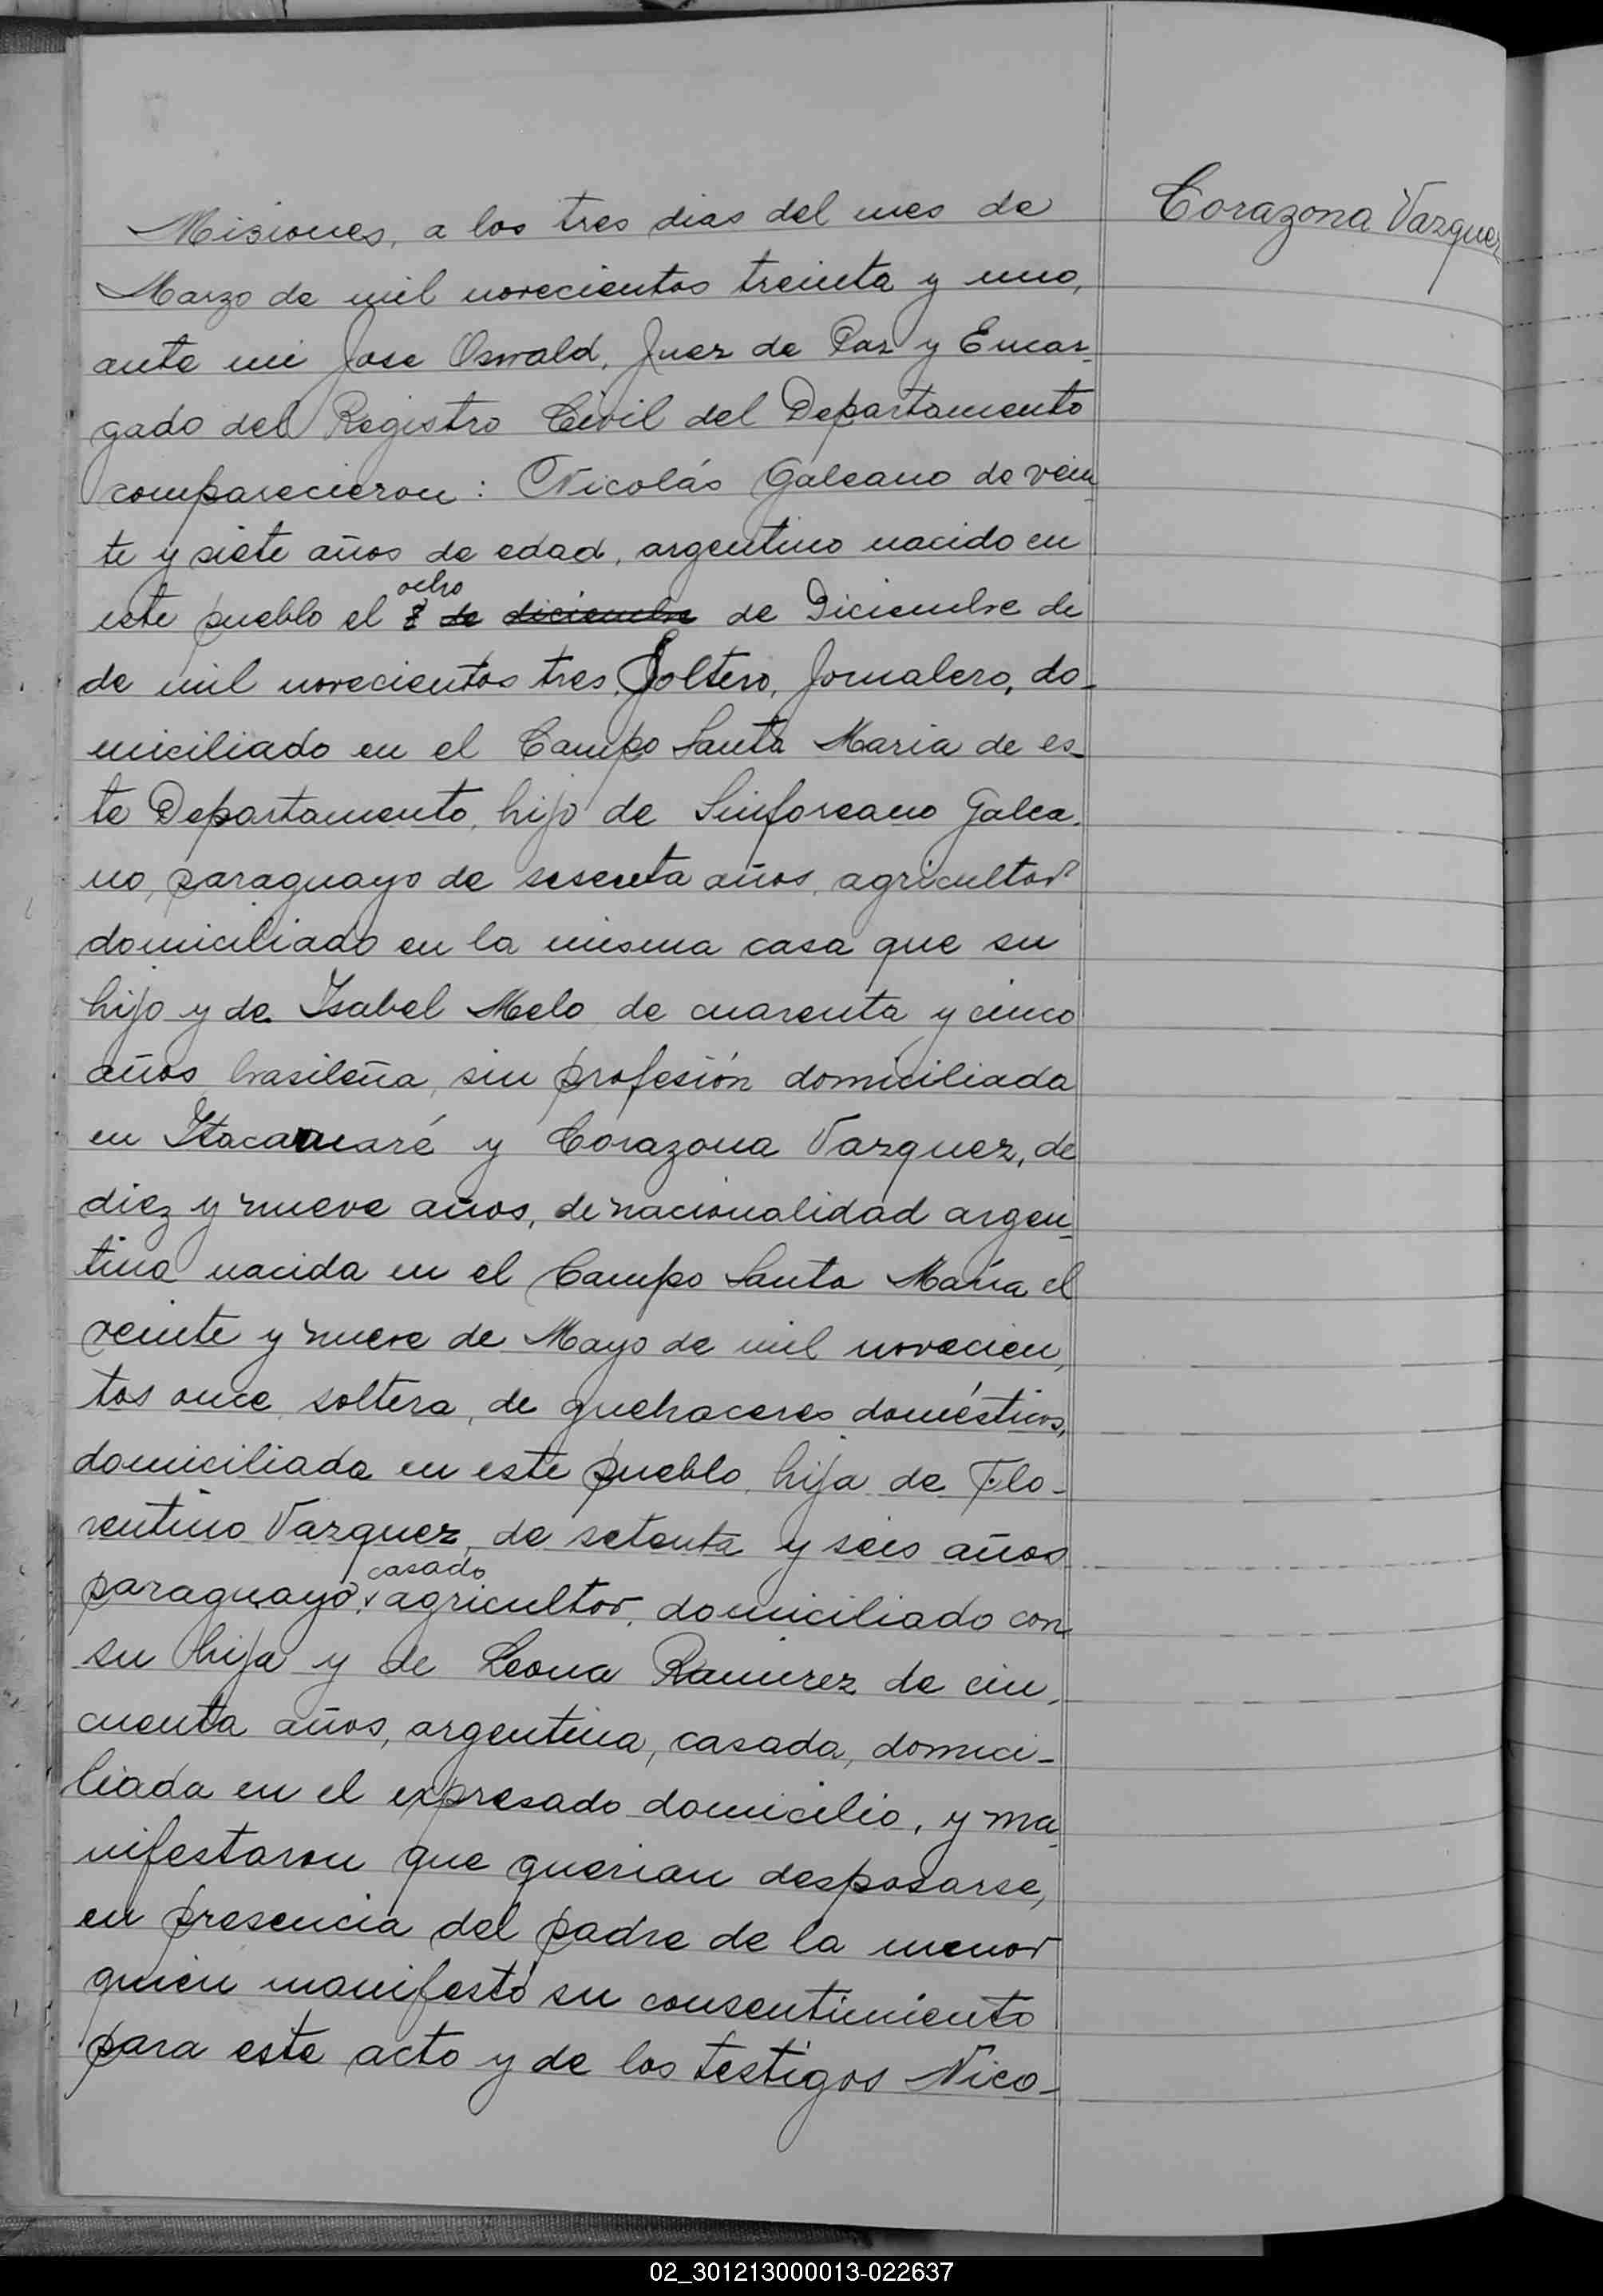 Corazona Vazquez
Misiones, a los tres dias del mes de
Marzo de mil novecientos treinta y uno,
ante mi Jose Oswald, Juez de Paz y Encar-
gado del Registro Civil del Departamento
comparecieron: Nicolás Galeano de vein-
te y siete años de edad, argentino nacido en
ocho
este pueblo el 8 de diciembre de Diciembre de
de mil novecientos tres, Soltero, Jornalero, do-
miciliado en el Campo Santa Maria de es-
te Departamento, hijo de Sinforeano Galea-
no, paraguayo de sesenta años, agricultor
domiciliado en la misma casa que su
hijo y de Isabel Melo de cuarenta y cinco
años brasileña, sin profesión domiciliada
en Itacaruaré y Corazona Vazquez, de
diez y nueve años, de nacionalidad argen-
tina nacida en el Campo Santa María el
veinte y nueve de Mayo de mil novecien-
tos once, soltera, de quehaceres domésticos,
domiciliada en este pueblo, hija de Flo-
rentino Vazquez, de setenta y seis años
casado
paraguayo, agricultor, domiciliado con
su hija y de Leona Ramirez de cin-
cuenta años, argentina, casada, domici-
liada en el expresado domicilio, y ma-
nifestaron que querian desposarse,
en presencia del padre de la menor
quien manifestó su consentimiento
para este acto y de los testigos Nico-
02_301213000013-022637